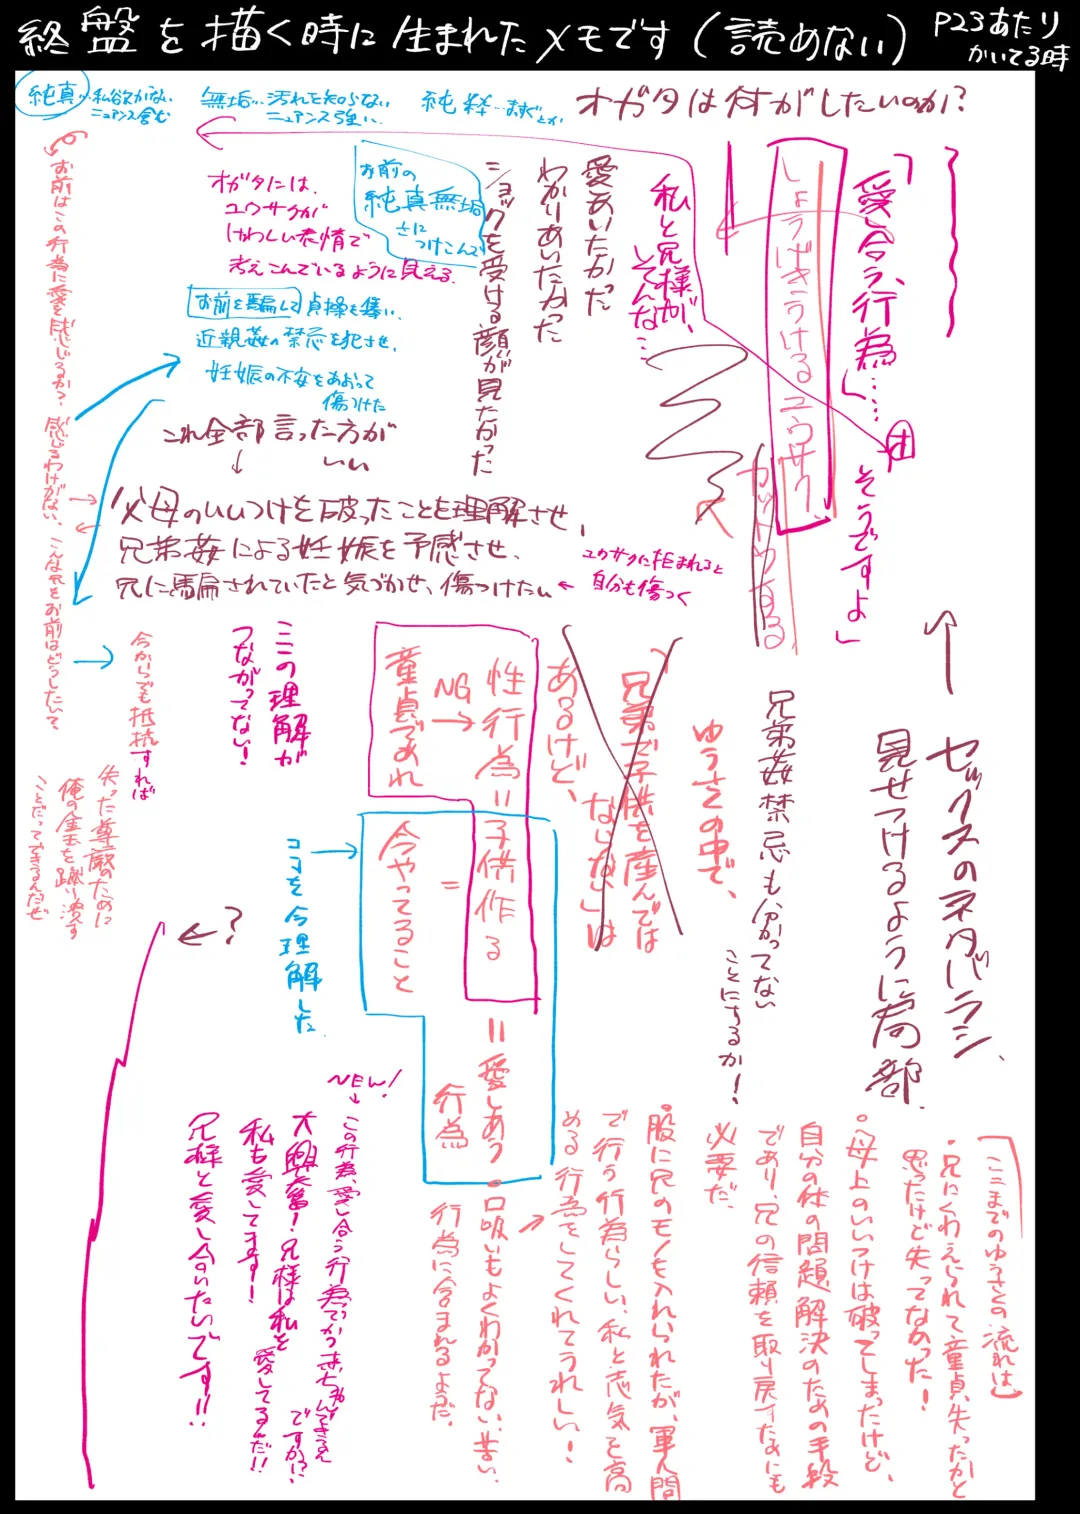 終盤を描く時に生まれたメモです(読めない)
P23あたり
かいてる時
純真…私欲がない
ニュアンス含む
無垢…汚れを知らない
ニュアンス強い
純粋…まっすぐとか
オガタは何がしたいのか?
「愛し合う、行為」……
囝
そうですよ」
しょうげきうけるユウサク、
カットウする
私と兄様が、
そんな…
愛あいたかった
わかりあいたかった
ショックを受ける顔が見たかった
お前の
純真無垢
さに
つけこんで
オガタには、
ユウサクが
けわしい表情で
考えこんでいるように見える。
お前を騙して貞操を奪い、
近親姦の禁忌を犯させ、
妊娠の不安をあおって
傷つけた
これ全部言った方が
いい
↓
父母のいいつけを破ったことを理解させ、
兄弟姦による妊娠を予感させ、
兄に騙されていたと気づかせ、傷つけたい
← ユウサクに拒まれると
自分も傷つく
お前はこの行為に愛を感じるか?感じるわけがない、こんな兄をお前はどうしたいて
今からでも抵抗すれば
失った尊厳のために
俺の金玉を蹴り潰す
ことだってできるんだぜ
←?
セックスのネタバラシ、
見せつけるように局部、
兄弟姦禁忌も分かってない
ことにするか!
ゆうさの中で、
「兄弟で子供を産んでは
ならない」は
あるけど、
性行為=子供作る=愛しあう
行為
NG
→
童貞であれ
=
今やってること
ここの理解が
つながってない!
ココを今理解した
(ここまでのゆうさくの流れは)
・兄にくわえられて童貞失ったかと
思ったけど失ってなかった!
・母上のいいつけは破ってしまったけど、
自分の体の問題解決のための手段
であり、兄の信頼を取り戻すためにも
必要だ。
・股に兄のモノを入れられたが、軍人間
で行う行為らしい、私と志気を高
める行為をしてくれてうれしい!
・口吸いもよくわかってない、苦い、
行為に含まれるようだ。
NEW!
↓
この行為、愛し合う行為でかつ赤ちゃんできるえ
ですか!?
大興奮!兄様は私を
愛してるんだ!!
私も愛してます!
兄様と愛し合いたいです!!